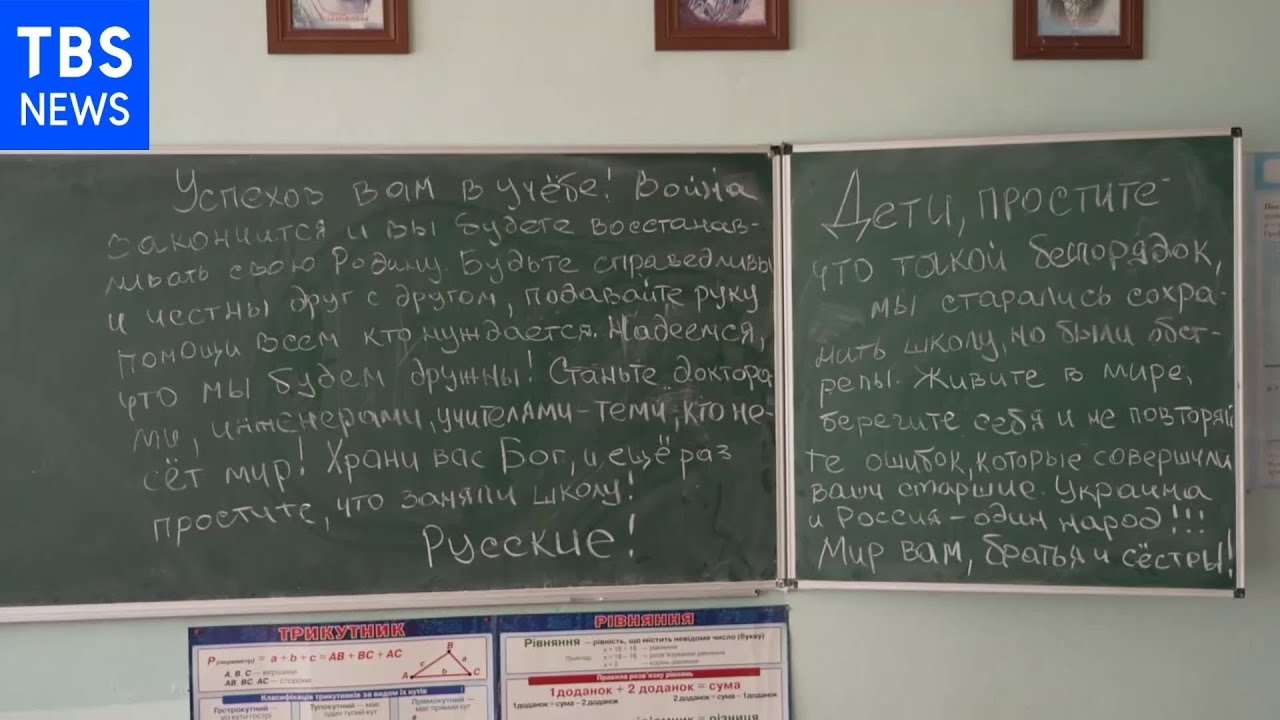 TBS
NEWS
Успехов вам в учёбе! Война
закончится и вы будете восстанав-
ливать свою Родину. Будьте справедливы
и честны друг с другом, подавайте руку
помощи всем кто нуждается. Надеемся,
что мы будем дружны! Станьте доктора
ми, инженерами, учителями-теми, кто не-
сёт мир! Храни вас Бог, и ещё раз
простите, что заняли школу!
Русские!
Дети, простите
что такой беспорядок,
мы старались сохра-
нить школу, но были обст-
релы. Живите в мире,
берегите себя и не повторяй
те ошибок, которые совершили
ваши старшие. Украина
и Россия - один народ!!!
Мир вам, братья и сёстры!
ТРИКУТНИК
P(периметр) = a + b + c = AB + BC + AC
A, B, C — вершини
AB, BC, AC — сторони
B
c
a
A
b
C
Класифікація трикутників за видом їх кутів
Гострокутний —
усі кути гострі
Тупокутний — має
один тупий кут
Прямокутний —
має прямий кут
РІВНЯННЯ
Рівняння — рівність, що містить невідоме число (букву)
Приклад:
x + 16 = 18 — рівняння
x = 18 – 16 — розв'язування рівняння
x = 2 — корінь рівняння
Правила розв'язку рівнянь
1доданок + 2 доданок = сума
1доданок = сума – 2доданок
2доданок = сума – 1доданок
= різниця